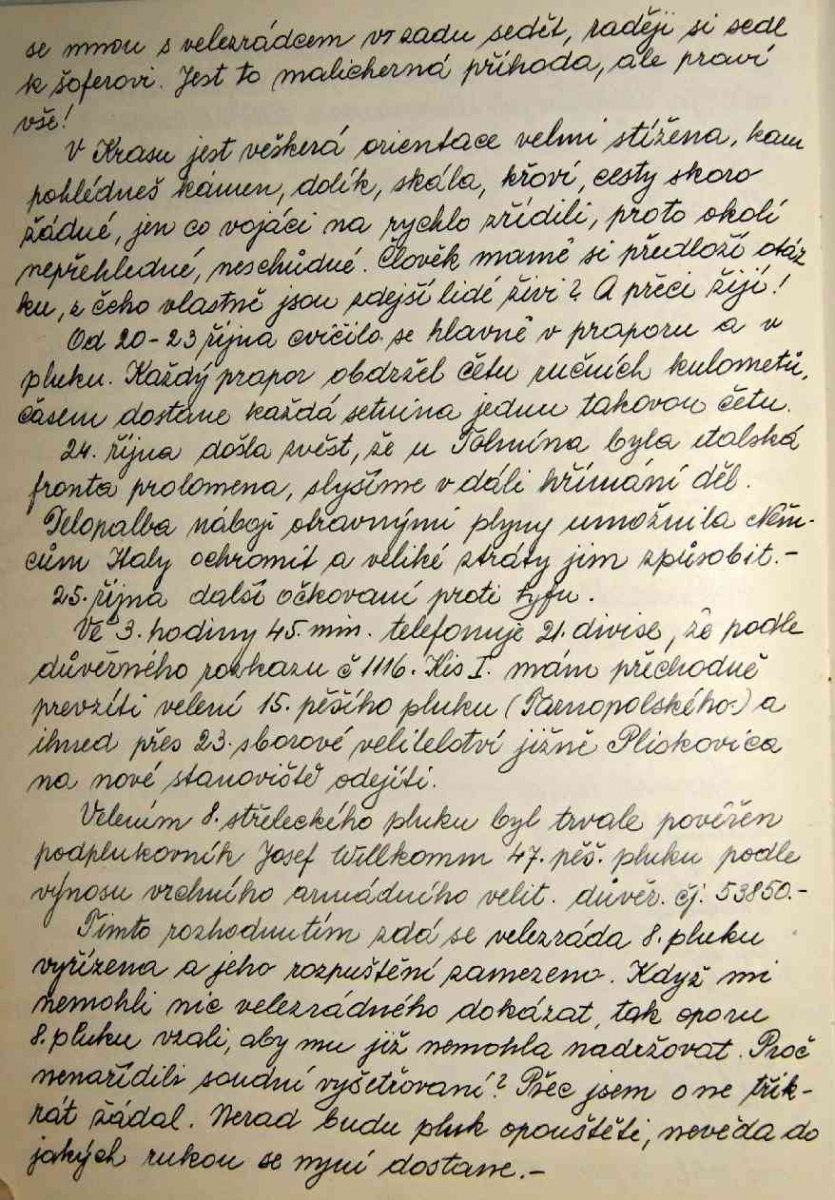 se mnou s velezrádcem vzadu sedět, raději si sedl
k šoferovi. Jest to malicherná příhoda, ale praví
vše!
V Krasu jest veškerá orientace velmi stížena, kam
pohlédneš kámen, dolík, skála, křoví, cesty skoro
žádné, jen co vojáci na rychlo zřídili, proto okolí
nepřehledné, neschůdné. Člověk mamě si předloží otáz
ku, z čeho vlastně jsou zdejší lidé živi? A přeci žijí!
Od 20-23 října cvičilo se hlavně v praporu a v
pluku. Každý prapor obdržel četu ručních kulometů,
časem dostane každá setnina jednu takovou četu.
24. října došla zvěst, že u Tolmína byla italská
fronta prolomena, slyšíme v dáli hřímání děl.
Dělopalba náboji otravnými plyny umožnila Něm-
cům Italy ochromit a veliké ztráty jim způsobit.-
25. října další očkovaní proti tyfu.
Ve 3. hodiny 45. min. telefonuje 21. divise, že podle
důvěrného rozkazu č 1116. Kis I. mám přechodně
prevzíti velení 15. pěšího pluku (Tarnopolského) a
ihned přes 23. sborové velitelství jižně Pliskovica
na nové stanoviště odejíti.
Velením 8. střeleckého pluku byl trvale pověřen
podplukovník Josef Willkomm 47. pěš. pluku podle
výnosu vrchního armádního velit. důvěr. čj. 53850.-
Tímto rozhodnutím zdá se velezráda 8. pluku
vyřízena a jeho rozpuštění zamezeno. Když mi
nemohli nic velezrádného dokázat, tak oporu
8. pluku vzali, aby mu již nemohla nadržovat. Proč
nenařídili soudní vyšetřovaní? Přec jsem o ne třik-
rát žádal. Nerad budu pluk opouštěti, nevěda do
jakých rukou se nyní dostane.-